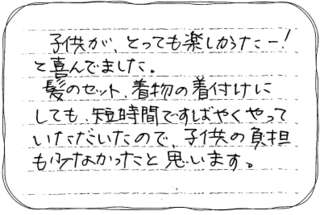 子供が、とっても楽しかったー！
と喜んでました。
髪のセット、着物の着付けに
しても、短時間ですばやくやって
いただいたので、子供の負担
も少なかったと思います。